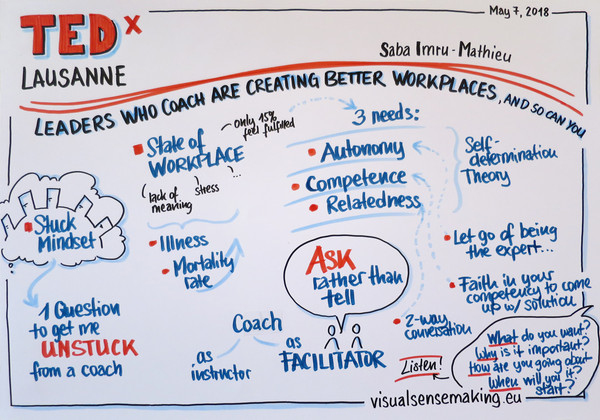 May 7, 2018
TEDx
LAUSANNE
Saba Imru-Mathieu
LEADERS WHO COACH ARE CREATING BETTER WORKPLACES, AND SO CAN YOU
State of
WORKPLACE
only 15%
feel fulfilled
lack of
meaning
stress
...
Illness
Mortality
rate
3 needs:
Autonomy
Competence
Relatedness
Self-
determination
Theory
Stuck
Mindset
1 Question
to get me
UNSTUCK
from a coach
Coach
as
instructor
as
FACILITATOR
ASK
rather than
tell
Let go of being
the expert...
Faith in your
competency to come
up w/ solution
2-way
conversation
Listen!
What do you want?
Why is it important?
How are you going about it?
When will you
start?
visualsensemaking.eu